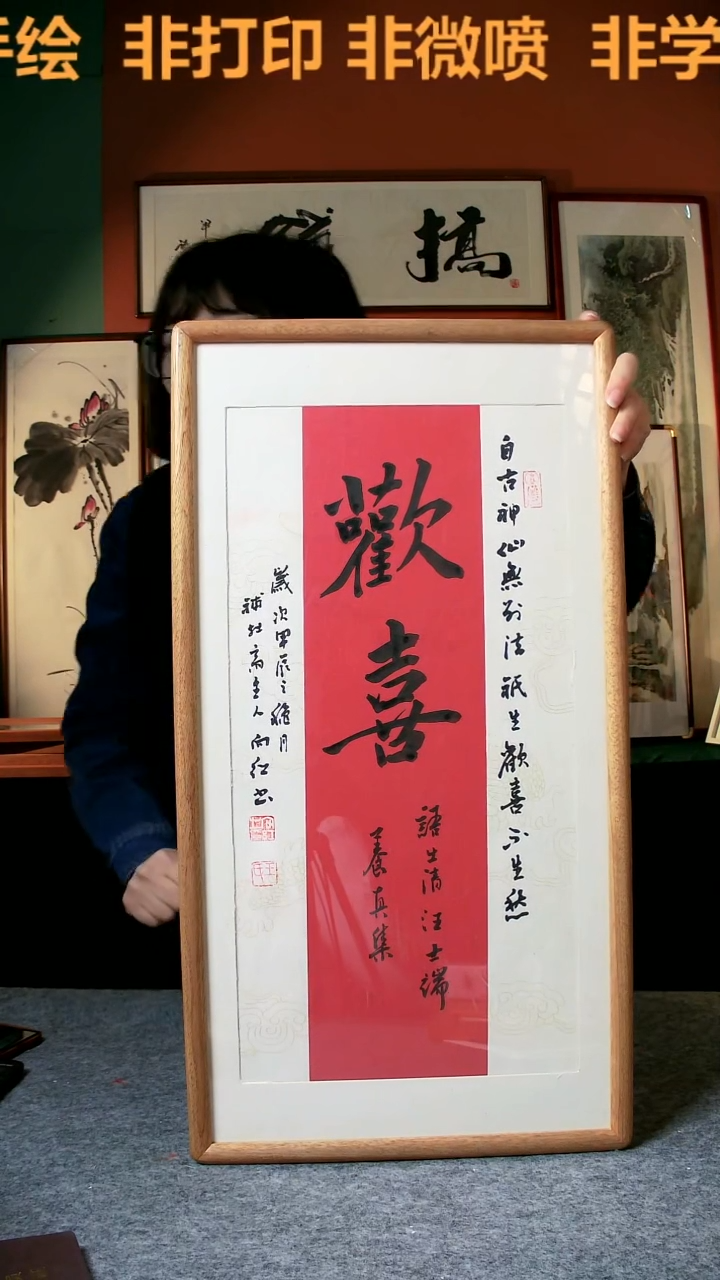 手绘 非打印 非微喷 非学
搞
自古神仙無别法祇生歡喜不生愁
歡喜
語出清汪士端
養真集
歲次甲辰之穐月
主人向红书